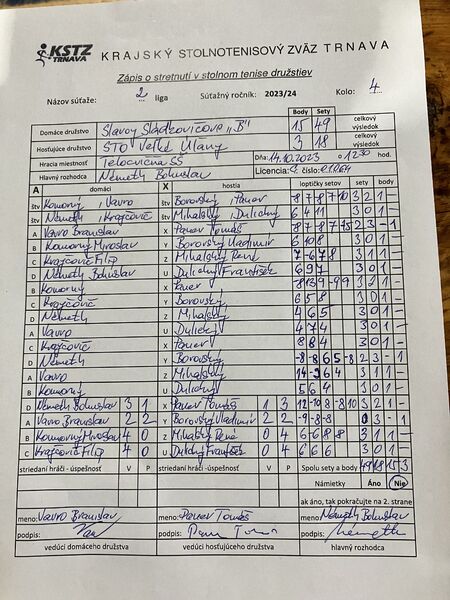 KSTZ TRNAVA KRAJSKÝ STOLNOTENISOVÝ ZVÄZ TRNAVA
Zápis o stretnutí v stolnom tenise družstiev
Názov súťaže: 2 liga Súťažný ročník: 2023/24 Kolo: 4
Body Sety
Domáce družstvo Slavoj Sládkovičovo "B" 15 49 celkový výsledok
Hosťujúce družstvo STO Veľké Úľany 3 18 celkový výsledok
Hracia miestnosť Telocvičňa SŠ Dňa: 14.10.2023 o 12 30 hod.
Hlavný rozhodca Németh Bohuslav Licencia: C číslo:
A domáci X hostia loptičky setov sety body
štv Komorný, Vavro štv Borovský, Pauer
štv Németh, Krajčovič štv Mihalský, Dulický 3 0 1 -
A Vavro Branislav X Pauer Tomáš 2 3 - 1
B Komorný Miroslav Y Borovský Vladimír 6 10 8 3 0 1 -
C Krajčovič Filip Z Mihalský René 7 -6 7 8 3 1 1 -
D Németh Bohuslav U Dulický František 6 9 7 3 0 1 -
B Komorný X Pauer
C Krajčovič Y Borovský 6 5 8 3 0 1 -
D Németh Z Mihalský 4 6 5 3 0 1 -
A Vavro U Dulický 4 7 4 3 0 1 -
C Krajčovič X Pauer 8 8 4 3 0 1 -
D Németh Y Borovský -8 -8 6 5 -8 2 3 - 1
A Vavro Z Mihalský 3 1 1 -
B Komorný U Dulický 5 6 4 3 0 1 -
D Németh Bohuslav 3 1 X Pauer Tomáš 1 3 12 -10 8 -8 10 3 2 1 -
A Vavro Branislav 2 2 Y Borovský Vladimír 2 2 -9 -8 -8 0 3 - 1
B Komorný Miroslav 4 0 Z Mihalský René 0 4 3 1 1 -
C Krajčovič Filip 4 0 U Dulický František 0 4 6 6 6 3 0 1 -
striedaní hráči - úspešnosť V P striedaní hráči - úspešnosť V P Spolu sety a body 49 18 15 3
Námietky Áno Nie
ak áno, tak pokračujte na 2. strane
meno: Vavro Branislav meno: Pauer Tomáš meno: Németh Bohuslav
podpis: podpis: podpis: Németh
vedúci domáceho družstva vedúci hosťujúceho družstva hlavný rozhodca